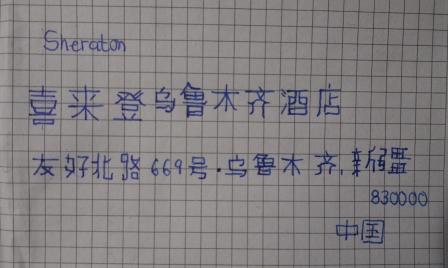 Sheraton
喜来登乌鲁木齐酒店
友好北路669号·乌鲁木齐,新疆
830000
中国